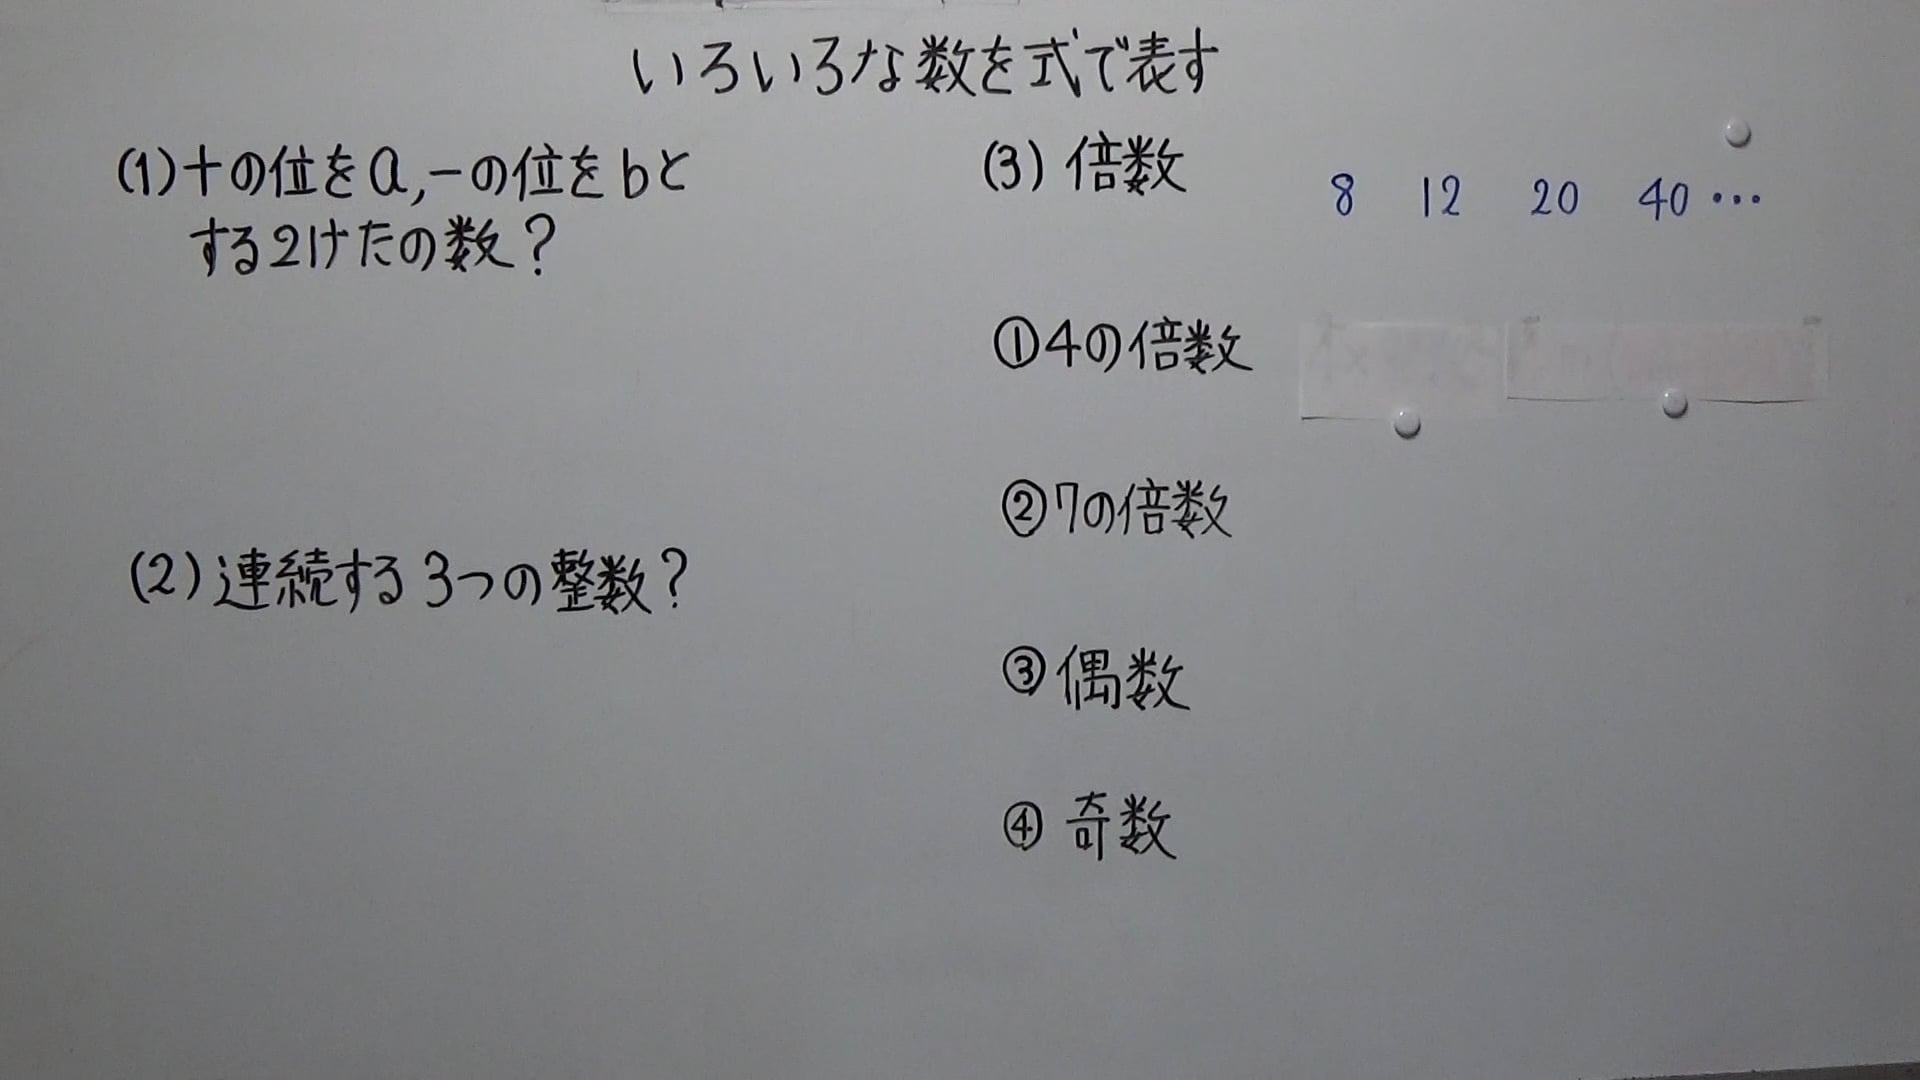 いろいろな数を式で表す
(1)十の位をa,一の位をbと
する2けたの数?
(2)連続する3つの整数?
(3)倍数
8 12 20 40…
①4の倍数
②7の倍数
③偶数
④奇数